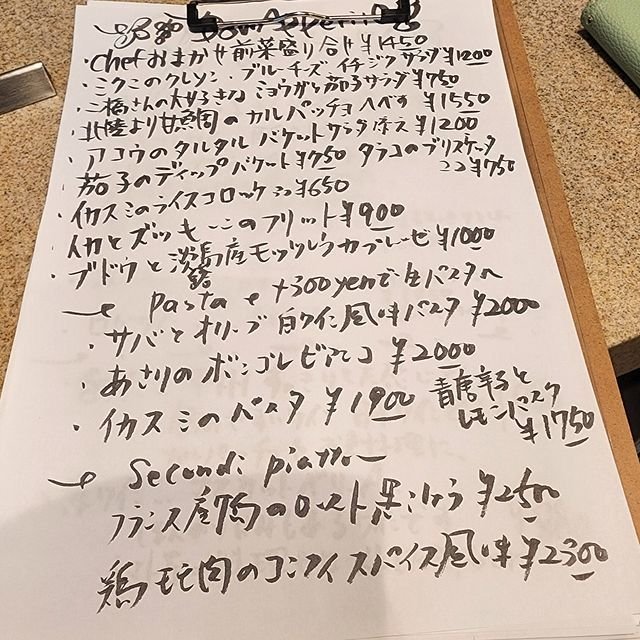 Bon Appetit
・Chefおまかせ前菜盛り合せ ¥1450
・ミクニのクレソン・ブルーチーズ イチジク サラダ ¥1200
・三橋さんの大好きな ミョウガと茄子サラダ ¥750
・北陸より甘鯛のカルパッチョ ¥1550
・アコウのタルタル バケットサラダ添え ¥1200
茄子のディップバケット ¥750 タラコのブリスケッタ
2コ ¥750
・イカスミのライスコロッケ 2コ ¥650
イカとズッキーニのフリット ¥900
・ブドウと淡路産モッツレラカプレーゼ ¥1000
Pasta +300yenで生パスタへ
・サバとオリーブ 白ワイン風味パスタ ¥2000
・あさりのボンゴレビアンコ ¥2000
・イカスミのパスタ ¥1900
青唐辛子と
レモンパスタ
¥1750
Secondi piatto
フランス産鴨のロースト 黒こしょう ¥2500
鶏モモ肉のコンフィスパイス風味 ¥2300